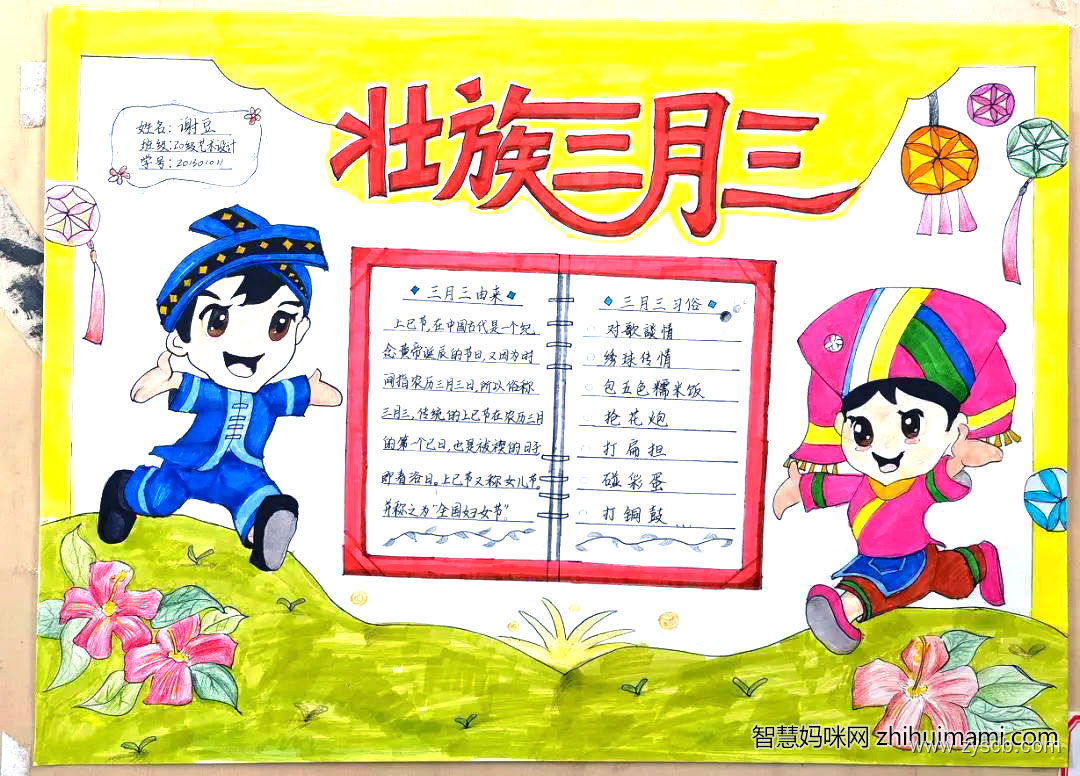 壮族三月三
姓名:谢豆
班级:20级艺术设计
学号:201301011
三月三由来
上巳节,在中国古代是一个纪
念黄帝诞辰的节日,又因为时
间指农历三月三日,所以俗称
三月三,传统的上巳节在农历三月
的第一个巳日,也是祓禊的日子
即春浴日,上巳节又称女儿节
并称之为"全国妇女节"
三月三习俗
对歌談情
绣球传情
包五色糯米饭
抢花炮
打扁担
碰彩蛋
打铜鼓...
智慧妈咪网 zhihuimami.com
www.zyscb.com